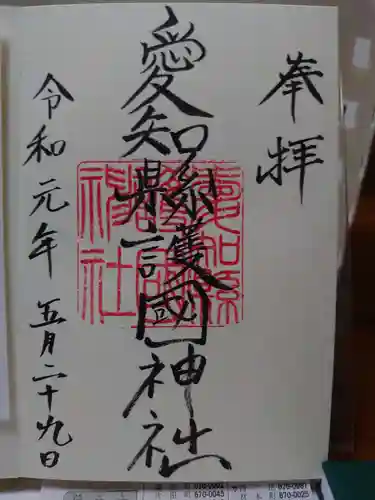 奉拝
愛知縣護國神社
令和元年五月二十九日
愛知縣
護國神社